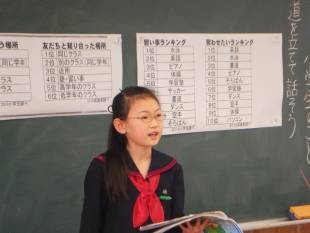 う場所
クラス
ラス(同じ学年)
クラス
クラス
友だちと知り合った場所
1位 同じクラス
2位 別のクラス(同じ学年)
3位 近所
4位 塾・習い事
5位 高学年のクラス
6位 低学年のクラス
習い事ランキング
1位 水泳
2位 英語
3位 ピアノ
4位 体操
5位 学習塾
サッカー
書道
ダンス
空手
そろばん
習わせたいランキング
1位 水泳
2位 英語
3位 ピアノ
4位 体操
5位 書道
6位 学習塾
7位 ダンス
8位 空手
9位 そろばん
10位 パソコン
道を立てて話そう